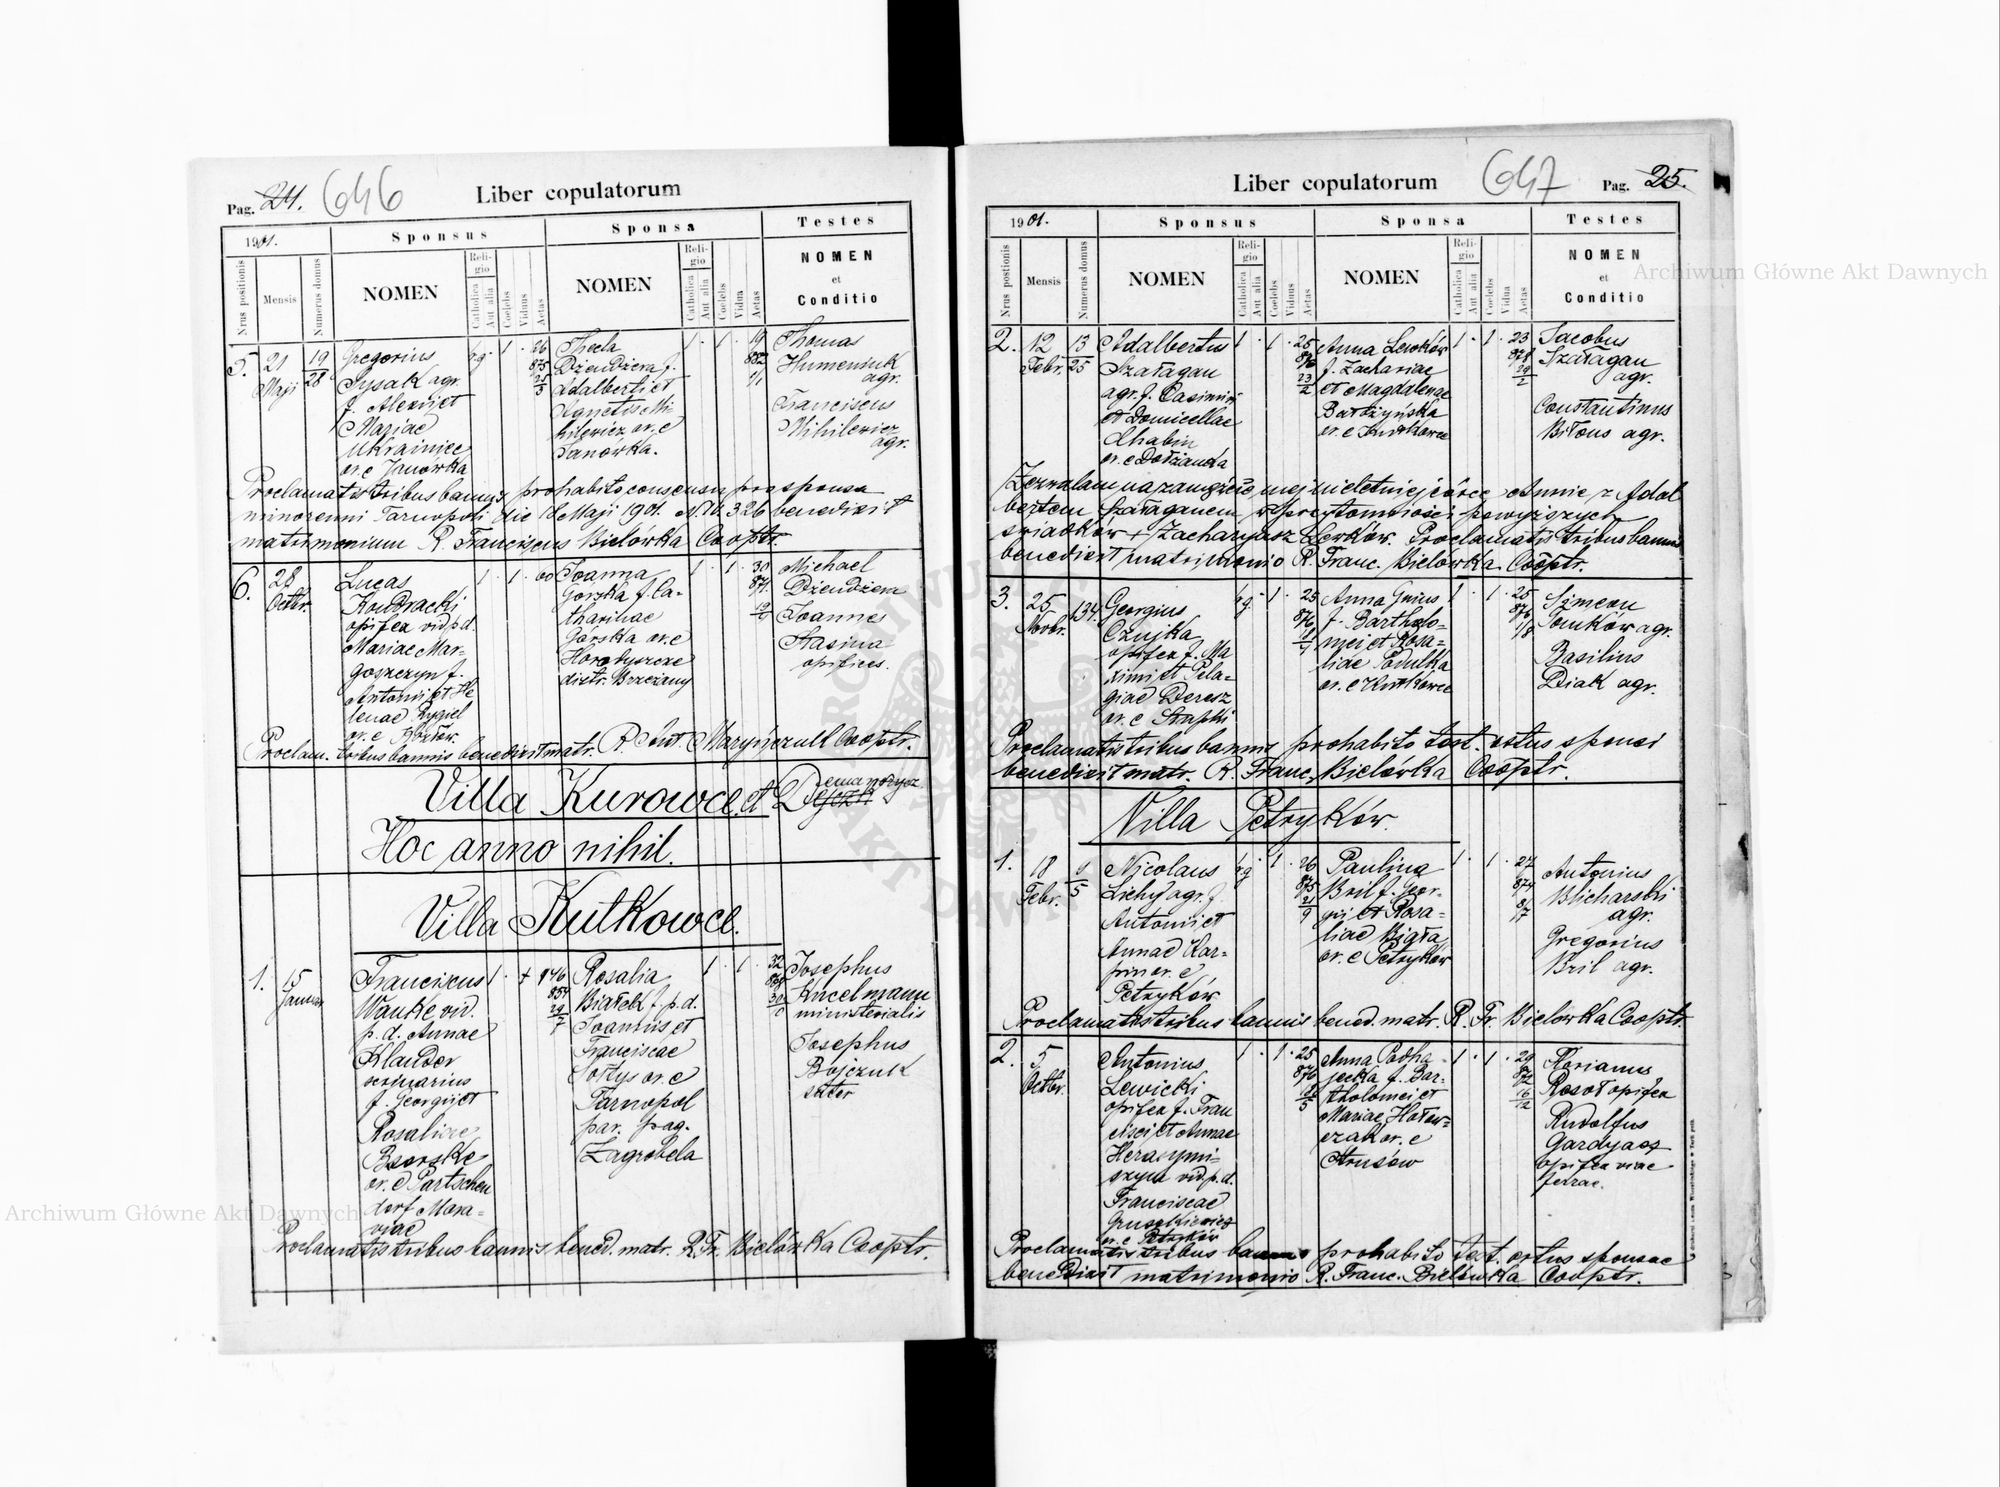 Pag. 24. 646 Liber copulatorum
1901. Sponsus Sponsa Testes
Nrus positionis
Mensis
Numerus domus
NOMEN
Religio
Catholica
Aut alia
Coelebs
Viduus
Aetas
NOMEN
Religio
Catholica
Aut alia
Coelebs
Vidua
Aetas
NOMEN
et
Conditio
5. 21
Maji
19
28
Gregorius
Sysak agr.
f. Alexii et
Mariae
Ukrainiec
or. e Janówka
rg. 1
26
875
25
3
Thecla
Dżendżera f.
Adalberti et
Agnetis Mi
hilewicz or. e
Janówka.
1 1
19
882
1/1
Thomas
Humeniuk
agr.
Franciscus
Mihilewicz
agr.
Proclamatis tribus bannis, prohabito consensu pro sponsa
minorenni Tarnopoli die 18 Maji 1901. N. 326 benedixit
matrimonium R. Franciscus Bielówka Cooptr.
6. 28
Octbr.
Lucas
Kondracki
opifex vid. p. d.
Mariae Mar-
goszczyn f.
Antonii et He
lenae Rygiel
1 1 60
Joanna
Gorzka f. Ca-
tharinae
Górska or. e
Horodyszcze
distr. Brzeżany
1 1
30
871
19
9
Michael
Dżendżera
Joannes
Stasina
opifices.
Proclam. tribus bannis benedixit matr. R. Ant. Maryńczuk Cooptr.
Villa Kurowce. et Demamorycz
Hoc anno nihil.
Villa Kutkowce.
1. 15
Januar.
Franciscus
Wanke vid.
p. d. Annae
Klauder
scriniarius
f. Georgii et
Rosaliae
or. e Partschen
dorf Mora-
viae
1 + 1 46
854
29
7
Rosalia
Białek f. p. d.
Joannis et
Franciscae
Sołtys or. e
Tarnopol
par. pag.
Zagrobela
1 1
32
868
30
Josephus
Kincelmann
ministerialis
Josephus
Bojczuk
sutor
Proclamatis tribus bannis bened. matr. R. Fr. Bielówka Cooptr.
Liber copulatorum 647 Pag. 25.
1901. Sponsus Sponsa Testes
Nrus postionis
Mensis
Numerus domus
NOMEN
Religio
Catholica
Aut alia
Coelebs
Viduus
Aetas
NOMEN
Religio
Catholica
Aut alia
Coelebs
Vidua
Aetas
NOMEN
et
Conditio
2. 12
Febr.
13
25
Adalbertus
Szałagan
agr. f. Casimiri
et Domicellae
Chabin
or. e Dołżanka
1 1
25
876
23
2
Anna Lewków
f. Zachariae
et Magdalenae
Bardzyńska
or. e Kutkowce
1 1
23
878
29
2
Jacobus
Szałagan
agr.
Constantinus
Biłous agr.
Zezwalam na zamęzcie mej nieletniej córce Annie z Adal
bertem Szałaganem w przytomności powyższych
świadków + Zacharyasz Lewków. Proclamatis tribus bannis
benedixit matrimonio R. Franc. Bielówka Cooptr.
3. 25
Novbr.
134.
Georgius
Czujka
opifex f. Ma
ximi et Pela-
giae Deresz
rg. 1
25
876
Anna Gnius
f. Bartholo-
mei et Rosa-
liae Podulka
or. e Kutkowce
1 1
25
876
1/8
Simeon
Tomków agr.
Basilius
Diak agr.
Proclamatis tribus bannis prohabito test. ortus sponsi
benedixit matr. R. Franc. Bielówka Cooptr.
Villa Petryków.
1. 18
Febr.
6
5
Nicolaus
Lichy agr. f.
Antonii et
Annae Kar-
pin or. e
Petryków
rg 1
26
875
21
9
Paulina
Bril f. Geor-
gii et Rosa-
liae Biała
or. e Petryków
1 1
27
874
Antonius
Blicharski
agr.
Gregorius
Bril agr.
Proclamatis tribus bannis bened. matr. R. Fr. Bielówka Cooptr.
2. 5
Octbr.
Antonius
Lewicki
opifex f. Fran
cisci et Annae
Herasymi-
szyn vid. p. d.
Franciscae
Gruszkiewicz
or. e Petryków
1 1
25
876
28
5
Anna Podha-
jecka f. Bar-
tholomei et
Mariae Hołow-
czak or. e
1 1
29
872
16
12
Florianus
Rosoł opifex
Rudolfus
Gardyasz
opifex viae
ferrae.
Proclamatis tribus bannis prohabito test. ortus sponsae
benedixit matrimonio R. Franc. Bielówka Cooptr.
Archiwum Główne Akt Dawnych
Archiwum Główne Akt Dawnych
ARCHIWUM
AKT DAWN